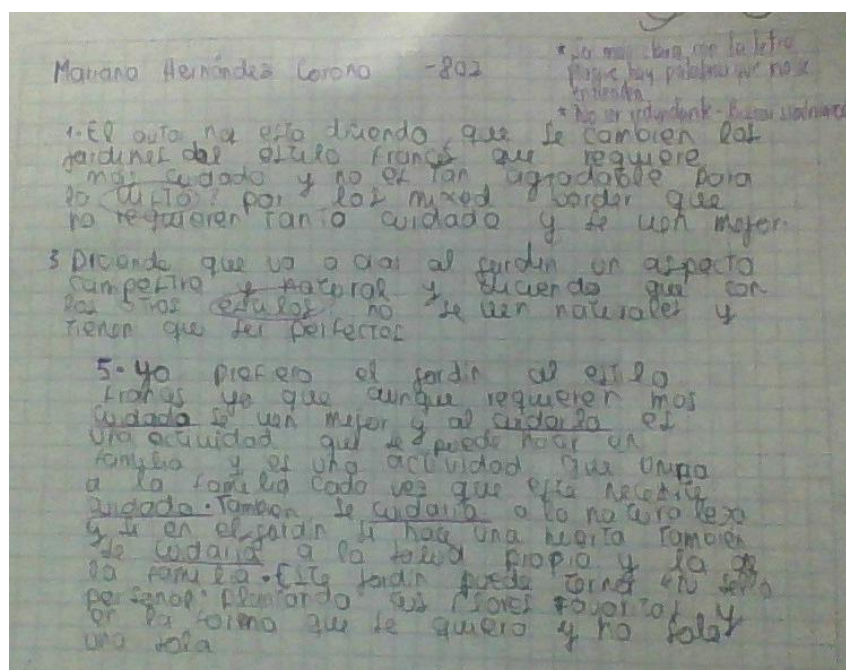 Mariana Hernández Corona -802
* Ser más clara con la letra
porque hay palabras que no se
entienden
* No ser redundante - Buscar sinónimos
1.- El autor nos esta diciendo que se cambien los
jardines del estilo Francés que requiere
mas cuidado y no es tan agradable para
la vista: por los mixed border que
no requieren tanto cuidado y se ven mejor.
3 Diciendo que va a dar al jardin un aspecto
campestre y natural y diciendo que con
los otros estilos: no se ven naturales y
tienen que ser perfectos
5- yo prefiero el jardin al estilo
frances ya que aunque requieren mas
cuidado se ven mejor y al cuidarla es
una actividad que se puede hacer en
familia y es una actividad que
a la familia cada vez que este necesite
cuidado. Tambien se cuidaria a la naturaleza
y si en el jardin se hace una huerta Tambien
se cuidaria a la salud propia y la de
la familia. Este jardin puede tener "tu sello
personal" plantando sus flores favoritas y
en la forma que se quiera y no solo
una sola